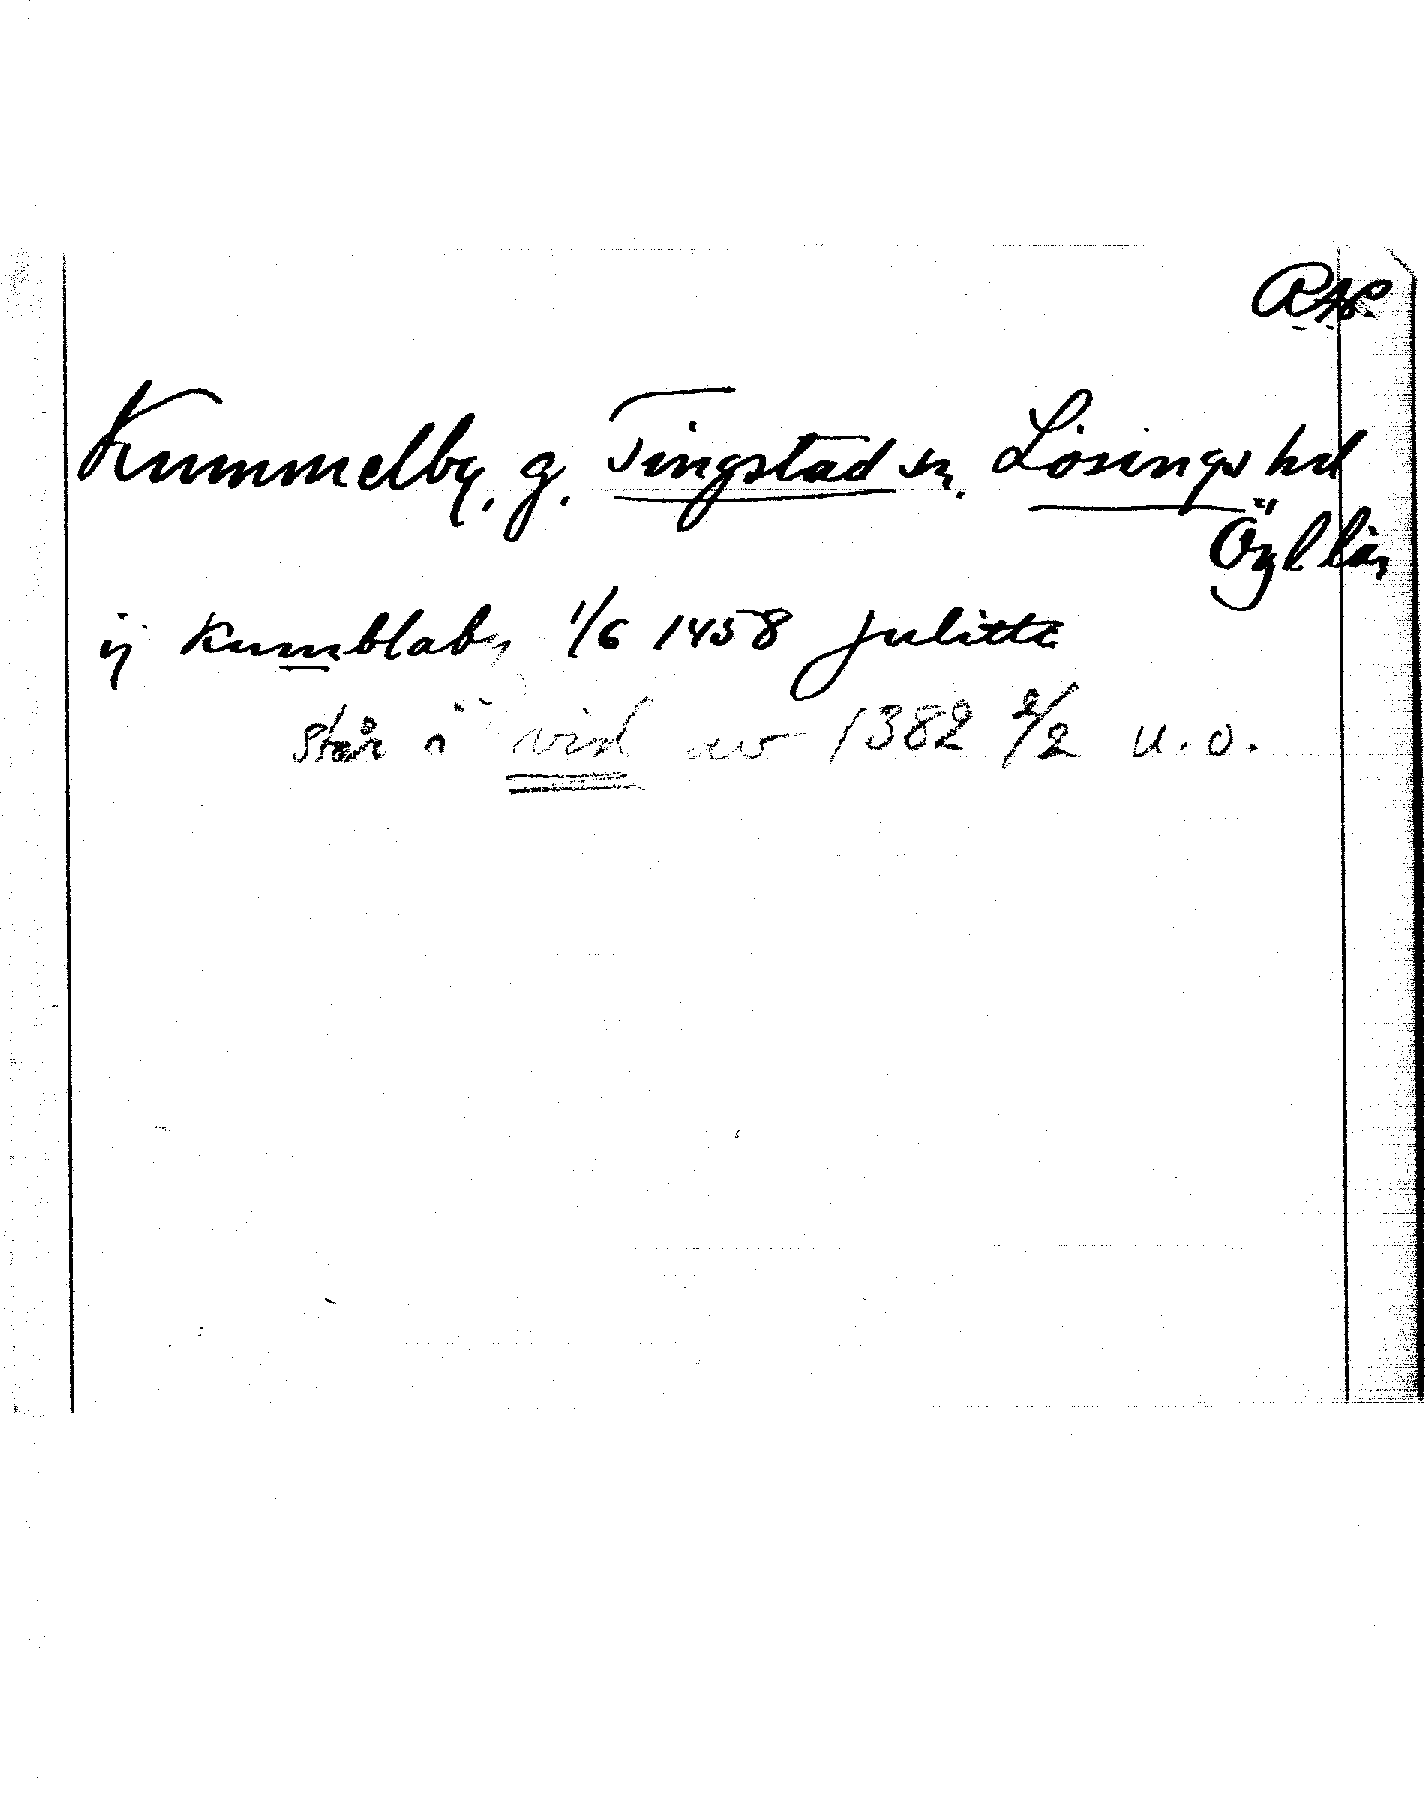 RAP.
Kummelby, g. Tingstad sn. Lösings hd
Ögl län
ij Kumblaby 1/6 1458 Julitta
står i vid av 1382 2/2 u. o.